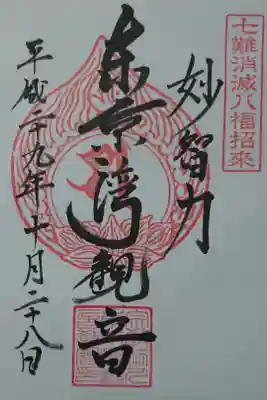 七難消滅八福招来
妙智力
東京湾観音
平成二十九年十月二十八日